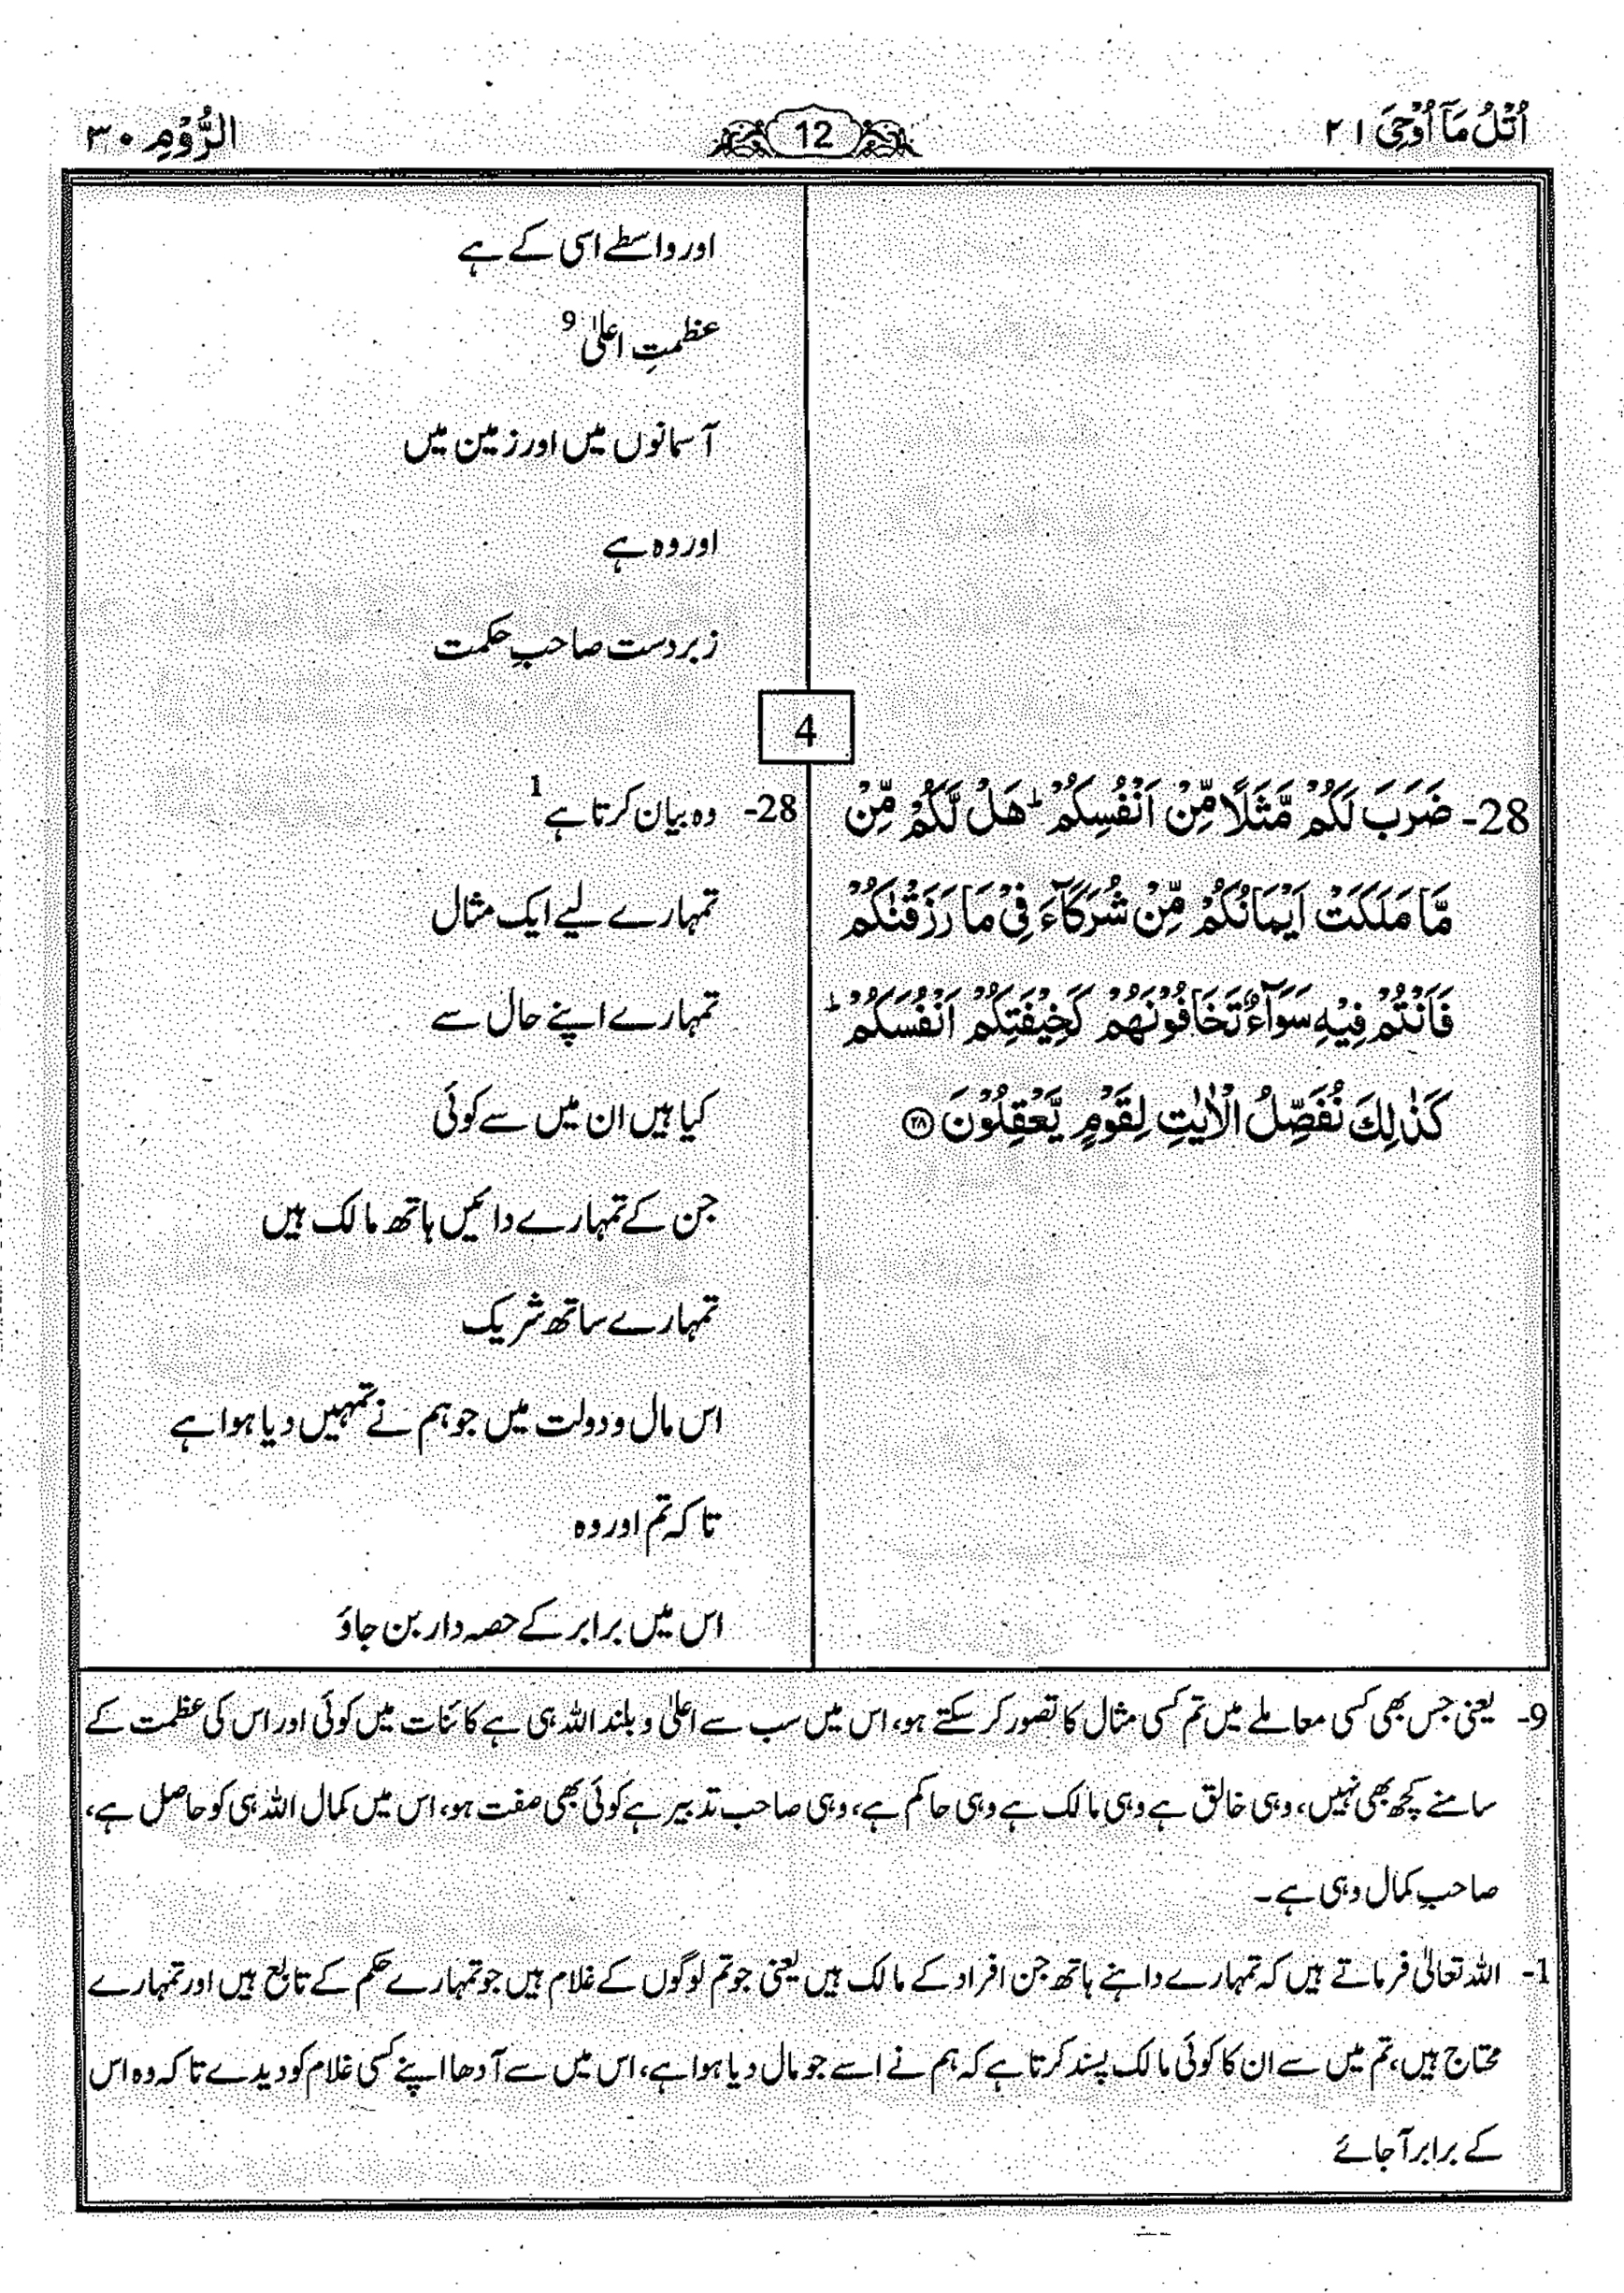 اُتْلُ مَآ اُوْحِیَ ۲۱
12
الرُّوْمِ ۳۰
اور واسطے اسی کے ہے
عظمتِ اعلیٰ 9
آسمانوں میں اور زمین میں
اور وہ ہے
زبردست صاحبِ حکمت
4
28- ضَرَبَ لَكُمْ مَّثَلًا مِّنْ اَنْفُسِكُمْ ؕ هَلْ لَّكُمْ مِّنْ
مَّا مَلَكَتْ اَيْمَانُكُمْ مِّنْ شُرَكَآءَ فِیْ مَا رَزَقْنٰكُمْ
فَاَنْتُمْ فِيْهِ سَوَآءٌ تَخَافُوْنَهُمْ كَخِيْفَتِكُمْ اَنْفُسَكُمْ ؕ
كَذٰلِكَ نُفَصِّلُ الْاٰيٰتِ لِقَوْمٍ يَّعْقِلُوْنَ ۲۸
28- وہ بیان کرتا ہے 1
تمہارے لیے ایک مثال
تمہارے اپنے حال سے
کیا ہیں ان میں سے کوئی
جن کے تمہارے دائیں ہاتھ مالک ہیں
تمہارے ساتھ شریک
اس مال و دولت میں جو ہم نے تمہیں دیا ہوا ہے
تا کہ تم اور وہ
اس میں برابر کے حصہ دار بن جاؤ
9- یعنی جس بھی کسی معاملے میں تم کسی مثال کا تصور کر سکتے ہو، اس میں سب سے اعلیٰ و بلند اللہ ہی ہے کائنات میں کوئی اور اس کی عظمت کے
سامنے کچھ بھی نہیں، وہی خالق ہے وہی مالک ہے وہی حاکم ہے، وہی صاحب تدبیر ہے کوئی بھی صفت ہو، اس میں کمال اللہ ہی کو حاصل ہے،
صاحبِ کمال وہی ہے۔
1- اللہ تعالیٰ فرماتے ہیں کہ تمہارے داہنے ہاتھ جن افراد کے مالک ہیں یعنی جو تم لوگوں کے غلام ہیں جو تمہارے حکم کے تابع ہیں اور تمہارے
محتاج ہیں، تم میں سے ان کا کوئی مالک پسند کرتا ہے کہ ہم نے اسے جو مال دیا ہوا ہے، اس میں سے آدھا اپنے کسی غلام کو دیدے تا کہ وہ اس
کے برابر آ جائے